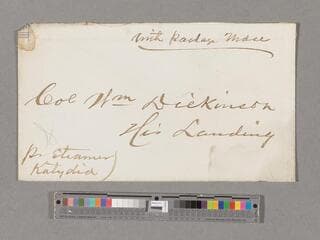 With Package
Col Wm Dickinson
His Landing
Pr Steamer
Katydid